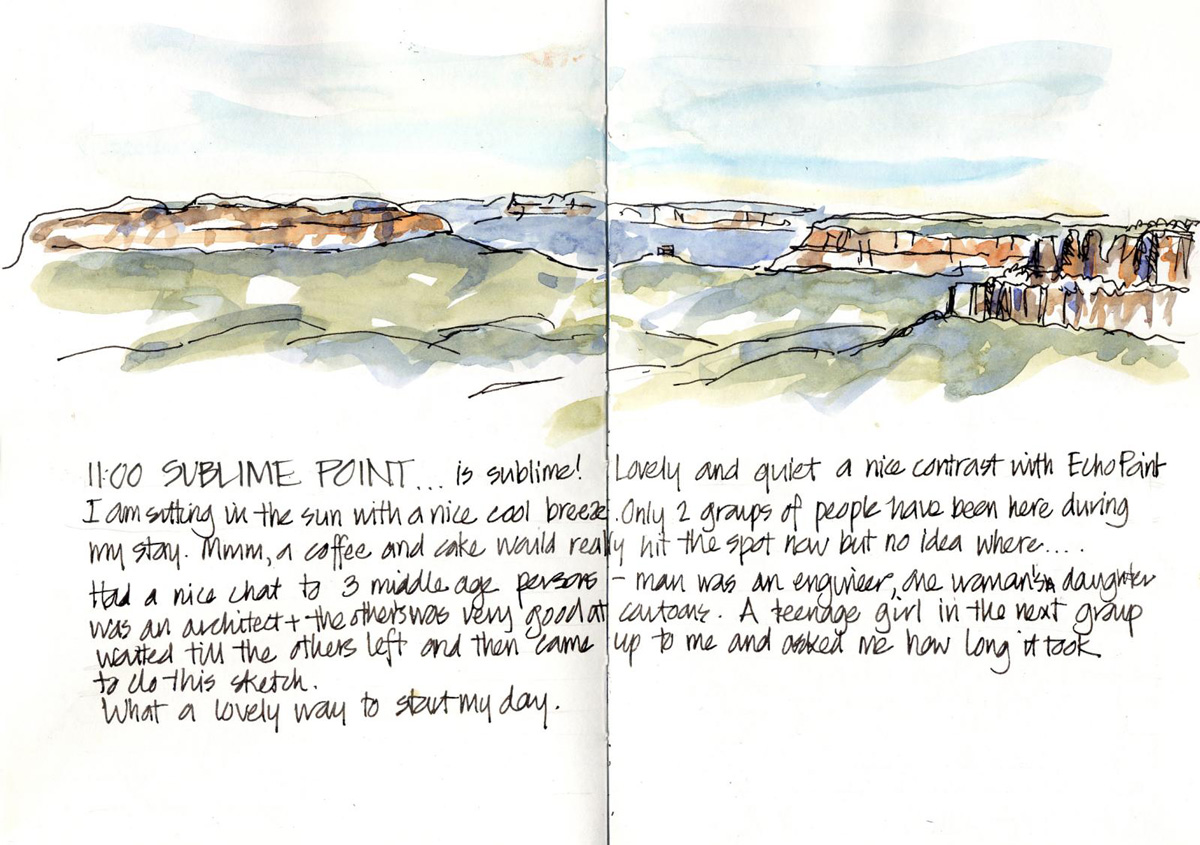 11:00 SUBLIME POINT... is sublime! Lovely and quiet a nice contrast with Echo Point
I am sitting in the sun with a nice cool breeze. Only 2 groups of people have been here during
my stay. Mmm, a coffee and cake would really hit the spot now but no idea where....
Had a nice chat to 3 middle age persons - man was an engineer, one woman's daughter
was an architect + the others was very good at cartoons. A teenage girl in the next group
waited till the others left and then came up to me and asked me how long it took
to do this sketch.
What a lovely way to start my day.